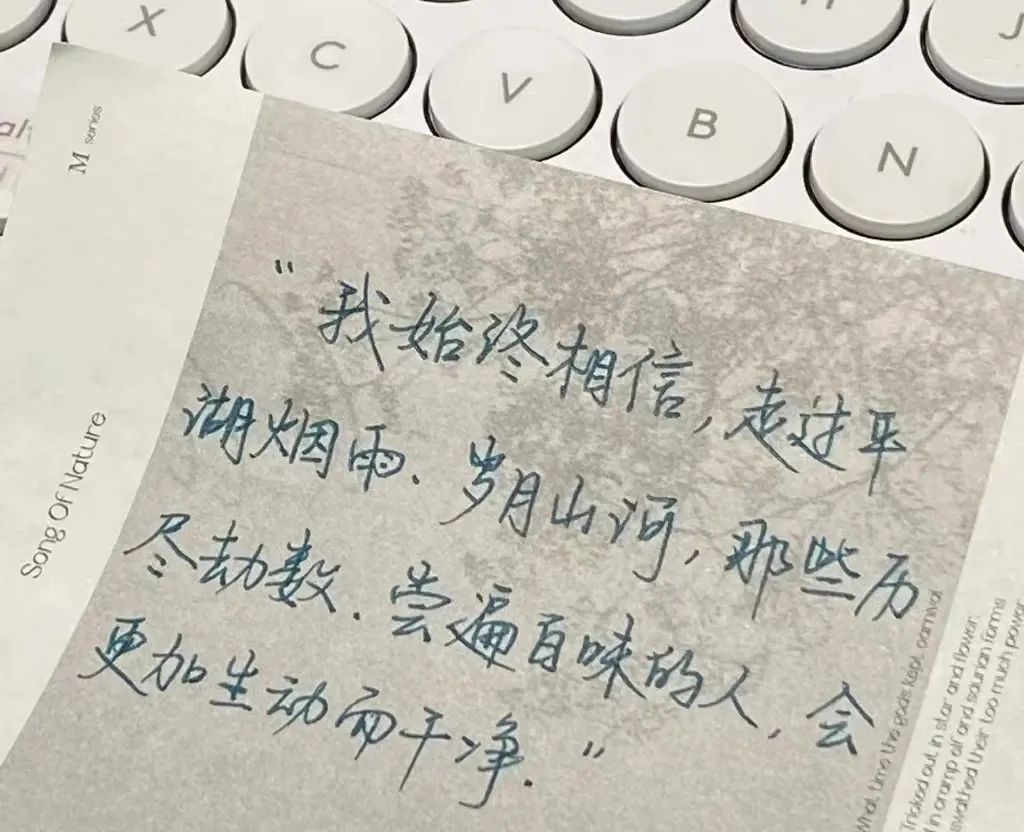 X
C
V
B
N
J
M series
Song Of Nature
“我始终相信,走过平
湖烟雨、岁月山河,那些历
尽劫数、尝遍百味的人,会
更加生动而干净.”
What time the gods kept carnival
Tricked out in star and flower,
in cramp elf and saurian forms
swathed their too much power